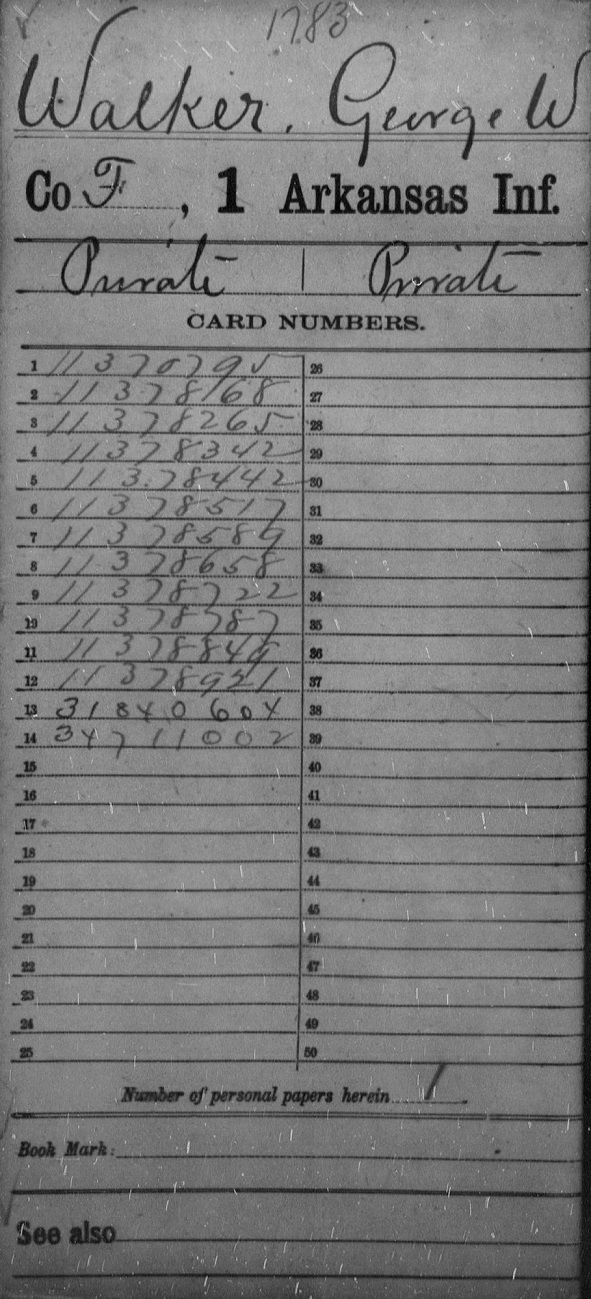 1783
Walker, George W
Co F, 1 Arkansas Inf.
Private | Private
CARD NUMBERS.
1 11370795 26
2 11378168 27
3 11378265 28
4 11378342 29
5 11378442 30
6 11378517 31
7 11378589 32
8 11378658 33
9 11378722 34
10 11378787 35
11 11378849 36
12 11378921 37
13 31840604 38
14 34711002 39
15 40
16 41
17 42
18 43
19 44
20 45
21 46
22 47
23 48
24 49
25 50
Number of personal papers herein 1
Book Mark:
See also